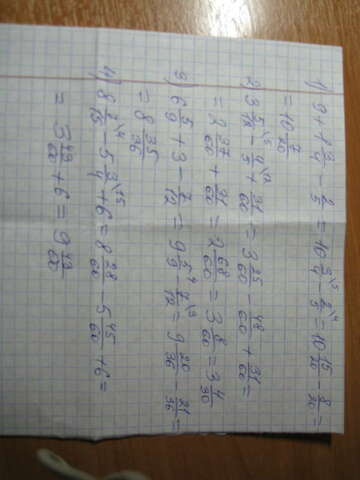 1) 9 + 1 3/4 - 2/5 = 10 3/4\5 - 2/5\4 = 10 15/20 - 8/20 =
= 10 7/20
2) 3 5/12\5 - 4/5\12 + 31/60 = 3 25/60 - 48/60 + 31/60 =
= 2 37/60 + 31/60 = 2 68/60 = 3 8/60 = 3 4/30
3) 6 5/9 + 3 - 7/12 = 9 5/9\4 - 7/12\3 = 9 20/36 - 21/36 =
= 8 35/36
4) 8 7/15\4 - 5 3/4\15 + 6 = 8 28/60 - 5 45/60 + 6 =
= 3 43/60 + 6 = 9 43/60